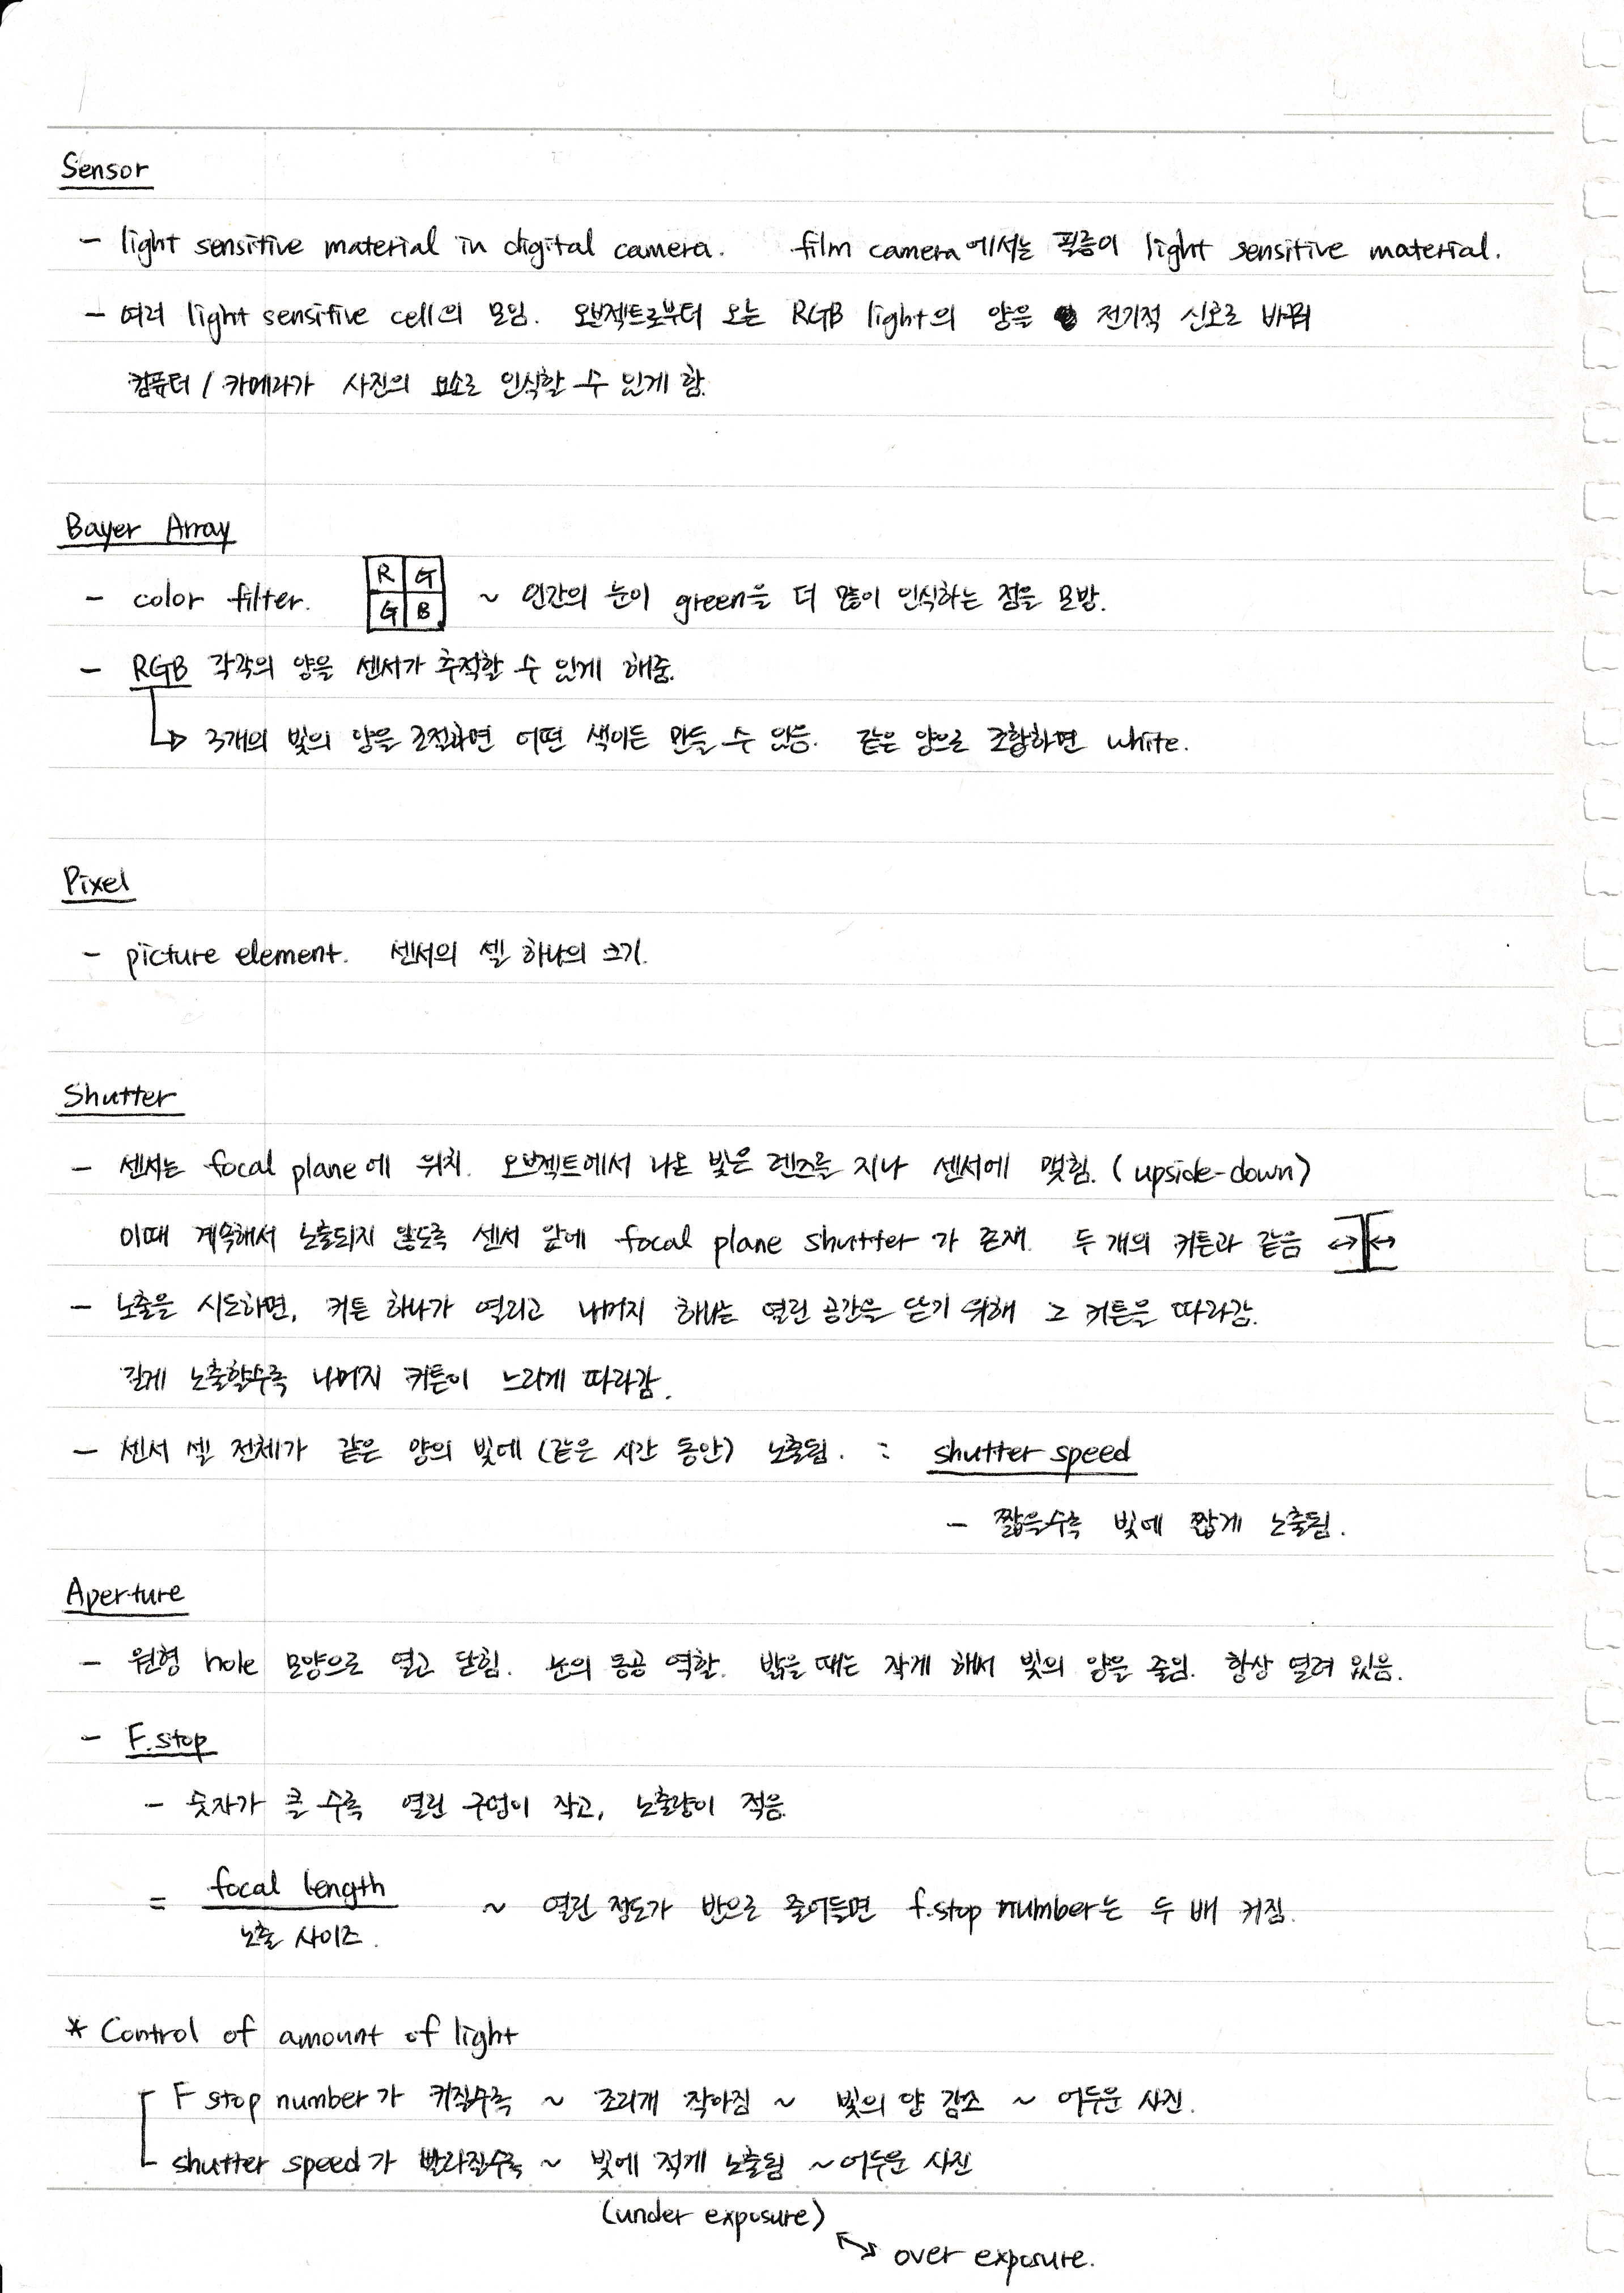 Sensor
- light sensitive material in digital camera. film camera에서는 필름이 light sensitive material.
- 여러 light sensitive cell의 모임. 오브젝트로부터 오는 RGB light의 양을 전기적 신호로 바꿔
컴퓨터 / 카메라가 사진의 요소로 인식할 수 있게 함.
Bayer Array
R G
- color filter. ~ 인간의 눈이 green을 더 많이 인식하는 점을 모방.
G B
- RGB 각각의 양을 센서가 추적할 수 있게 해줌.
→ 3개의 빛의 양을 조절하면 어떤 색이든 만들 수 있음. 같은 양으로 조합하면 white.
Pixel
- picture element. 센서의 셀 하나의 크기.
Shutter
- 센서는 focal plane에 위치. 오브젝트에서 나온 빛은 렌즈를 지나 센서에 맺힘. (upside-down)
이때 계속해서 노출되지 않도록 센서 앞에 focal plane shutter가 존재. 두 개의 커튼과 같음
- 노출을 시도하면, 커튼 하나가 열리고 나머지 하나는 열린 공간을 닫기 위해 그 커튼을 따라감.
길게 노출할수록 나머지 커튼이 느리게 따라감.
- 센서 셀 전체가 같은 양의 빛에 (같은 시간 동안) 노출됨. : shutter speed
- 짧을수록 빛에 짧게 노출됨.
Aperture
- 원형 hole 모양으로 열고 닫힘. 눈의 동공 역할. 밝을 때는 작게 해서 빛의 양을 줄임. 항상 열려 있음.
- F.stop
- 숫자가 클 수록 열린 구멍이 작고, 노출량이 적음.
focal length
= ~ 열린 정도가 반으로 줄어들면 f.stop number는 두 배 커짐.
노출 사이즈.
* Control of amount of light
F stop number가 커질수록 ~ 조리개 작아짐 ~ 빛의 양 감소 ~ 어두운 사진.
shutter speed가 빨라질수록 ~ 빛에 적게 노출됨 ~ 어두운 사진
(under exposure)
↔ over exposure.